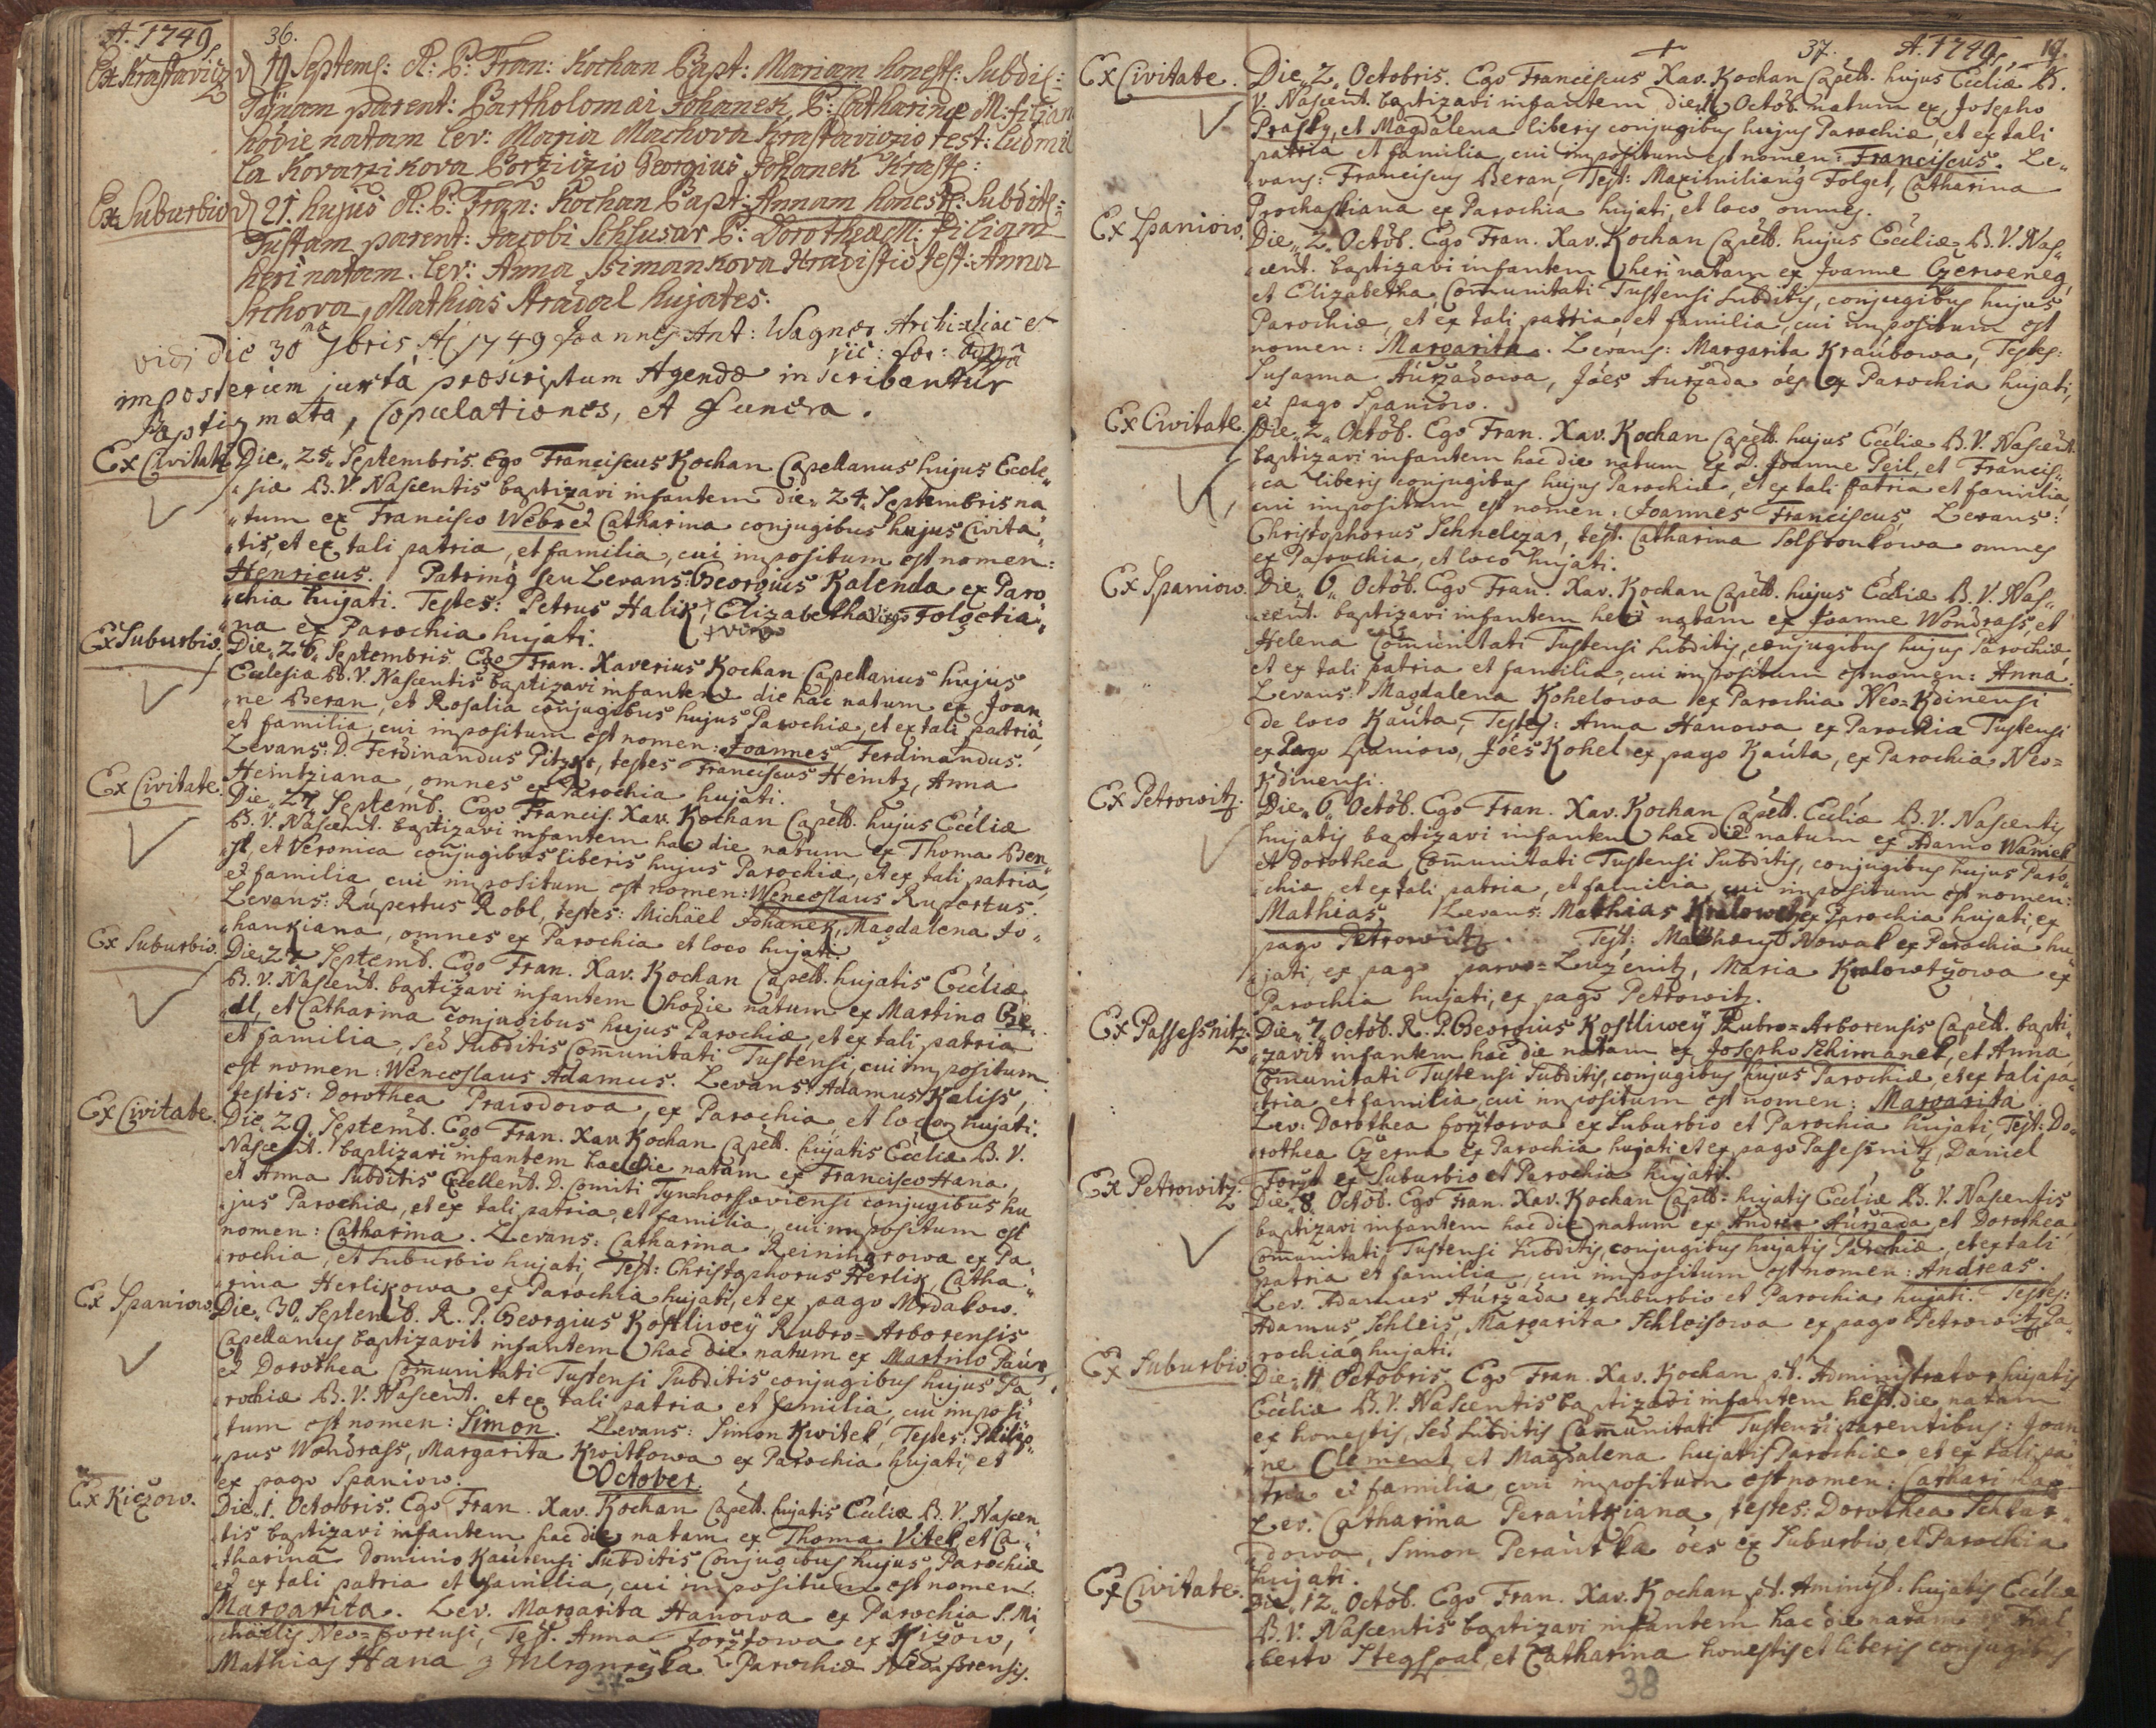 A. 1749 36.
Ex Krastavicz d 19 Septemb: R: P: Fran: Kochan Bapt: Mariam honest: Subdit:
parent: Bartholomaei Johanek P: Catharinae M: filiam
hodie natam Lev: Maria Machova Krastavicio test: Ludmil
la Kovarzikova Borzicio Georgius Johanek Krast:
Ex Suburbio d 21 hujus R: P: Fran: Kochan Bapt: Annam honest: Subdit:
Tustam parent: Jacobi Schlusar P: Dorotheae M: filiam
heri natam. Lev: Anna Ssimankova Hradistio test: Anna
Srchova, Mathias Hradal hujates.
vidi die 30 7bris A 1749 Joannes Ant: Wagner Archi-diac et
vic: for:
imposterum juxta praescriptum Agendae inscribantur
Baptizmata, Copulationes, et funera.
Ex Civitate Die 25 Septembris. Ego Franciscus Kochan Capellanus hujus Eccle„
„siae B. V. Nascentis baptizavi infantem die 24 Septembris na„
„tum ex Francisco Webr et Catharina conjugibus hujus Civita„
„tis, et ex tali patria, et familia, cui impositum est nomen:
Henricus. Patrinus seu Levans: Georgius Kalenda ex Paro„
„chia hujati. Testes: Petrus Halik, Elizabetha Virgo Folgetia„
„na ex Parochia hujati.
Ex Suburbio. Die 26 Septembris. Ego Fran. Xaverius Kochan Capellanus hujus
Ecclesia B. V. Nascentis baptizavi infantem die hac natum ex Joan„
„ne Beran, et Rosalia conjugibus hujus Parochiae, et ex tali patria,
et familia, cui impositum est nomen: Joannes Ferdinandus.
Levans: D. Ferdinandus Pitzker, testes Franciscus Heintz, Anna
Heintziana, omnes ex Parochia hujati.
Ex Civitate. Die 27 Septemb. Ego Francis. Xav. Kochan Capell. hujus Eccliae
B. V. Nascent. baptizavi infantem hac die natum ex Thoma Ben„
„st, et Veronica conjugibus liberis hujus Parochiae, et ex tali patria,
et familia cui impositum est nomen: Wenceslaus Rupertus.
Levans: Rupertus Robl, testes: Michaël Johanek, Magdalena Jo„
„hankiana, omnes ex Parochia et loco hujati.
Ex Suburbio. Die 27 Septemb. Ego Fran. Xav. Kochan Capell. hujatis Eccliae
B. V. Nascent. baptizavi infantem hodie natum ex Martino Bie„
„dl, et Catharina conjugibus hujus Parochiae, et ex tali patria
et familia, sed Subditis Communitati Tustensi, cui impositum
est nomen: Wenceslaus Adamus. Levans: Adamus Kaliss,
testis: Dorothea Prawdowa, ex Parochia et loco hujati.
Ex Civitate. Die 29 Septemb. Ego Fran. Xav. Kochan Capell. hujatis Eccliae B. V.
Nascent. baptizavi infantem hac die natam ex Francisco Hana,
et Anna Subditis Excellent. D. Comiti Tynhorssoviensi conjugibus hu
jus Parochiae, et ex tali patria, et familia, cui impositum est
nomen: Catharina. Levans: Catharina Reiningrowa ex Pa„
„rochia, et Suburbio hujati, Test: Christophorus Herlik, Catha„
„rina Herlikowa ex Parochia hujati, et ex pago Mrdakow.
Ex Spaniow. Die 30 Septemb. R. P. Georgius Kostliwey Rubro=Arborensis
Capellanus baptizavit infantem hac die natum ex Martino Paur,
et Dorothea Communitati Tustensi Subditis conjugibus hujus Pa
„rochiae B. V. Nascent. et ex tali patria et familia, cui imposi„
tum est nomen: Simon. Levans: Simon Kwitek, Testes: Philip„
„pus Wondrass, Margarita Kwitkowa ex Parochia hujati, et
ex pago Spaniow.
October.
Ex Kiczow. Die 1. Octobris. Ego Fran. Xav. Kochan Capell. hujatis Eccliae B. V. Nascen„
tis baptizavi infantem hac die natam ex Thoma Vitek et Ca„
„tharina Dominio Kautensi Subditis Conjugibus hujus Parochiae
et ex tali patria et familia, cui impositum est nomen:
Margarita. Lev. Margarita Hanowa ex Parochia S. Mi
„chaëlis Neo=forensi, Test. Anna Forstowa ex Kiczow,
Mathias Hana Parochiae Neo=forensis.
37
37. A. 1749 19.
Ex Civitate. Die 2 Octobris. Ego Franciscus Xav. Kochan Capell. hujus Eccliae B.
V. Nascent. baptizavi infantem die 1 Octob. natum ex Josepho
Prasky, et Magdalena liberis conjugibus hujus Parochiae, et ex tali
patria et familia, cui impositum est nomen: Franciscus. Le„
„vans: Franciscus Beran, Test: Maximilianus Folget, Catharina
Prochaskiana ex Parochia hujati, et loco omnes.
Ex Spaniow. Die 2 Octob. Ego Fran. Xav. Kochan Capell. hujus Eccliae B. V. Nas„
„cent. baptizavi infantem heri natam ex Joanne Czerweneg,
et Elizabetha, Communitati Tustensi Subditis, conjugibus hujus
Parochiae, et ex tali patria, et familia, cui impositum est
nomen: Margarita. Levans: Margarita Kraubowa, Testes:
Susanna Aurzadowa, Joes Aurzada oes ex Parochia hujati,
et pago Spaniow.
Ex Civitate. Die 2 Octob. Ego Fran. Xav. Kochan Capell. hujus Eccliae B. V. Nascent.
baptizavi infantem hac die natum ex D. Joanne Peil, et Francis„
„ca liberis conjugibus hujus Parochiae, et ex tali patria et familia,
cui impositum est nomen: Joannes Franciscus, Levans:
Christophorus Schnelczar, test. Catharina Solfronkowa omnes
ex Parochia, et loco hujati.
Ex Spaniow. Die 6 Octob. Ego Fran. Xav. Kochan Capell. hujus Eccliae B. V. Nas„
„cent. baptizavi infantem heri natam ex Joanne Wondrass, et
Helena Communitati Tustensi Subditis, conjugibus hujus Parochiae,
et ex tali patria et familia, cui impositum est nomen: Anna.
Levans: Magdalena Kohelowa ex Parochia Neo=Kdinensi
de loco Kauta, Testes: Anna Hanowa ex Parochia Tustensi
ex Pago Spaniow, Joes Kohel ex pago Kauta, ex Parochia Neo=
Kdinensi.
Ex Petrowitz. Die 6 Octob. Ego Fran. Xav. Kochan Capell. Eccliae B. V. Nascentis
hujatis baptizavi infantem hac die natum ex Adamo Waniek
et Dorothea Communitati Tustensi Subditis, conjugibus hujus Paro„
chiae, et ex tali patria, et familia, cui impositum est nomen:
Mathias. Levans: Mathias Kralowetz ex Parochia hujati, ex
pago Petrowitz. Test: Mathaeus Nowak ex Parochia hu„
„jati, ex pago parvo=Luzenitz, Maria Kralowtzowa ex
Parochia hujati, ex pago Petrowitz.
Ex Passessnitz. Die 7 Octob. R. P. Georgius Kostliwey Rubro=Arborensis Capell. bapti„
„zavit infantem hac die natam ex Josepho Schimanek, et Anna
Communitati Tustensi Subditis, conjugibus hujus Parochiae, et ex tali pa„
„tria et familia cui impositum est nomen: Margarita.
Lev: Dorothea Forstowa ex Suburbio et Parochia hujati, Test: Do„
„rothea Czerna ex Parochia hujati et ex pago Passessnitz, Daniel
Forst ex Suburbio et Parochia hujati.
Ex Petrowitz. Die 8 Octob. Ego Fran. Xav. Kochan Capell. hujatis Eccliae B. V. Nascentis
baptizavi infantem hac die natum ex Andrea Aurzada et Dorothea
Communitati Tustensi Subditis, conjugibus hujatis Parochiae, et ex tali
patria et familia, cui impositum est nomen: Andreas.
Lev. Adamus Aurzada ex Suburbio et Parochia hujati. Testes:
Adamus Schleis, Margarita Schleisowa ex pago Petrowitz Pa„
rochia hujati.
Ex Suburbio. Die 11 Octobris. Ego Fran. Xav. Kochan p.t. Administrator hujatis
Eccliae B. V. Nascentis baptizavi infantem die natam
ex honestis, sed Subditis Communitati Tustensi parentibus: Joan
„ne Clement, et Magdalena hujatis Parochiae, et ex tali pa„
tria et familia, cui impositum est nomen: Catharina
Lev. Catharina Perautkiana, testes: Dorothea
„dowa, Simon Perautka oes ex Suburbio, et Parochia
hujati.
Ex Civitate. Die 12 Octob. Ego Fran. Xav. Kochan p.t. Aminist: hujatis Eccliae
B. V. Nascentis baptizavi infantem hac die natam
„berto Stegspal, et Catharina honestis et liberis conjugibus
38